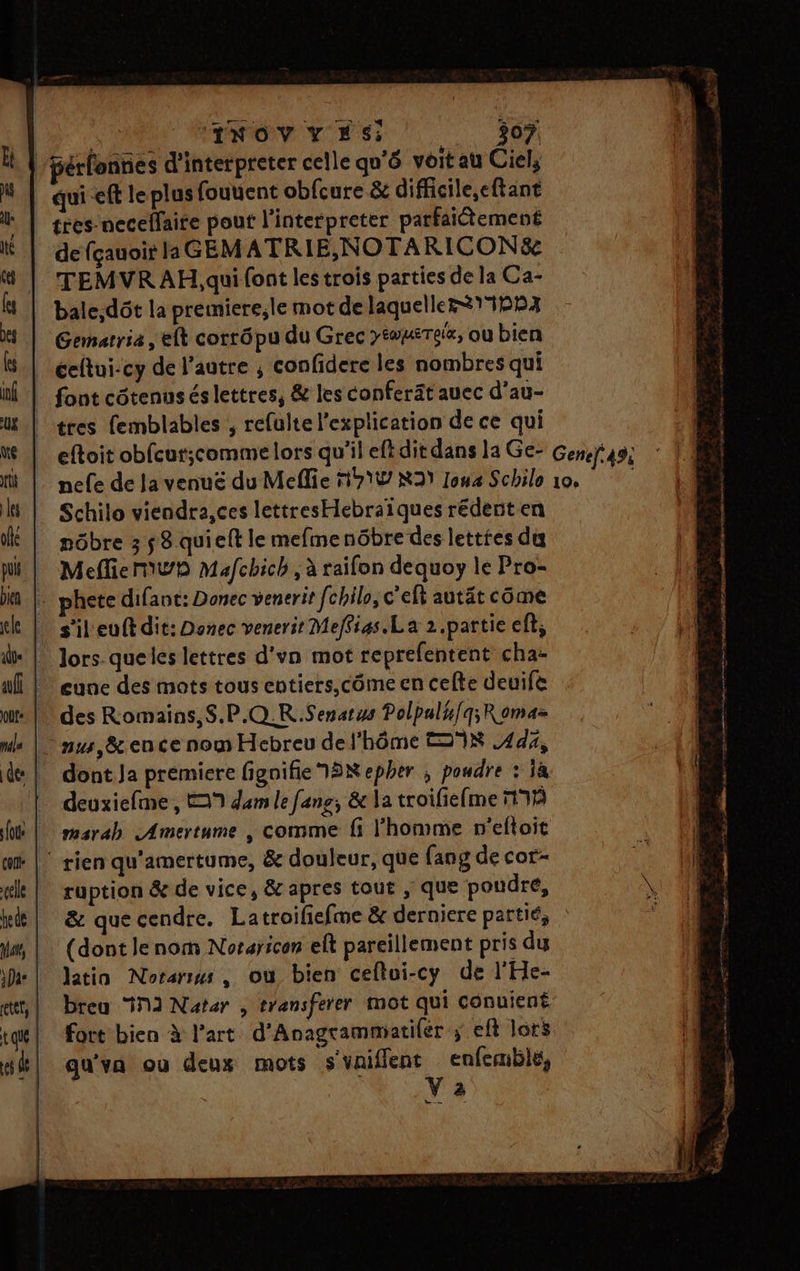 INOVYES; 307
pérſonnes d'interpreter celle qu'ô voit au Ciel,
qui eſt le plus ſouuent obſcure & difficile, eſtant
tres-neceſſaire pour l'interpreter parfaictement
de ſçauoir la GEMATRIE, NOTARICON &
TEMVRAH, qui ſont les trois parties de la Ca-
bale, dôt la premiere, le mot de laquelle
Gematria, eſt corrôpu du Grec γεωμετρία, ou bien
ceſtui-cy de l'autre, conſidere les nombres qui
ſont côtenus és lettres, & les conferât auec d'au-
tres ſemblables, reſulte l'explication de ce qui
eſtoit obſcur; comme lors qu'il eſt dit dans la Ge- Geneſ. 49,
neſe de la venuë du Meſſie שילה יבא Ioua Schilo 10.
Schilo viendra, ces lettres Hebraïques rêdent en
nôbre 358 qui eſt le meſme nôbre des lettres du
Meſſie משיח Maſchich, à raiſon dequoy le Pro-
phete diſant: Donec venerit ſchilo, c'eſt autât côme
s'il euſt dit: Donec venerit Meſsias. La 2. partie eſt,
lors que les lettres d'vn mot repreſentent cha-
cune des mots tous entiers, côme en ceſte deuiſe
des Romains, S.P.Q.R. Senatus Polpulúſq; Roma-
nus, & en ce nom Hebreu de l'hôme אדם Adā,
dont la premiere ſignifie אפר epher, poudre : la
deuxieſme, דם dam le ſang, & la troiſieſme מרה
marah Amertume, comme ſi l'homme n'eſtoit
rien qu'amertume, & douleur, que ſang de cor-
ruption & de vice, & apres tout, que poudre,
& que cendre. La troiſieſme & derniere partie,
(dont le nom Notaricon eſt pareillement pris du
latin Notarius, ou bien ceſtui-cy de l'He-
breu נתר Natar, transferer mot qui conuient
fort bien à l'art d'Anagrammatiſer, eſt lors
qu'vn ou deux mots s'vniſſent enſemble,
V 2